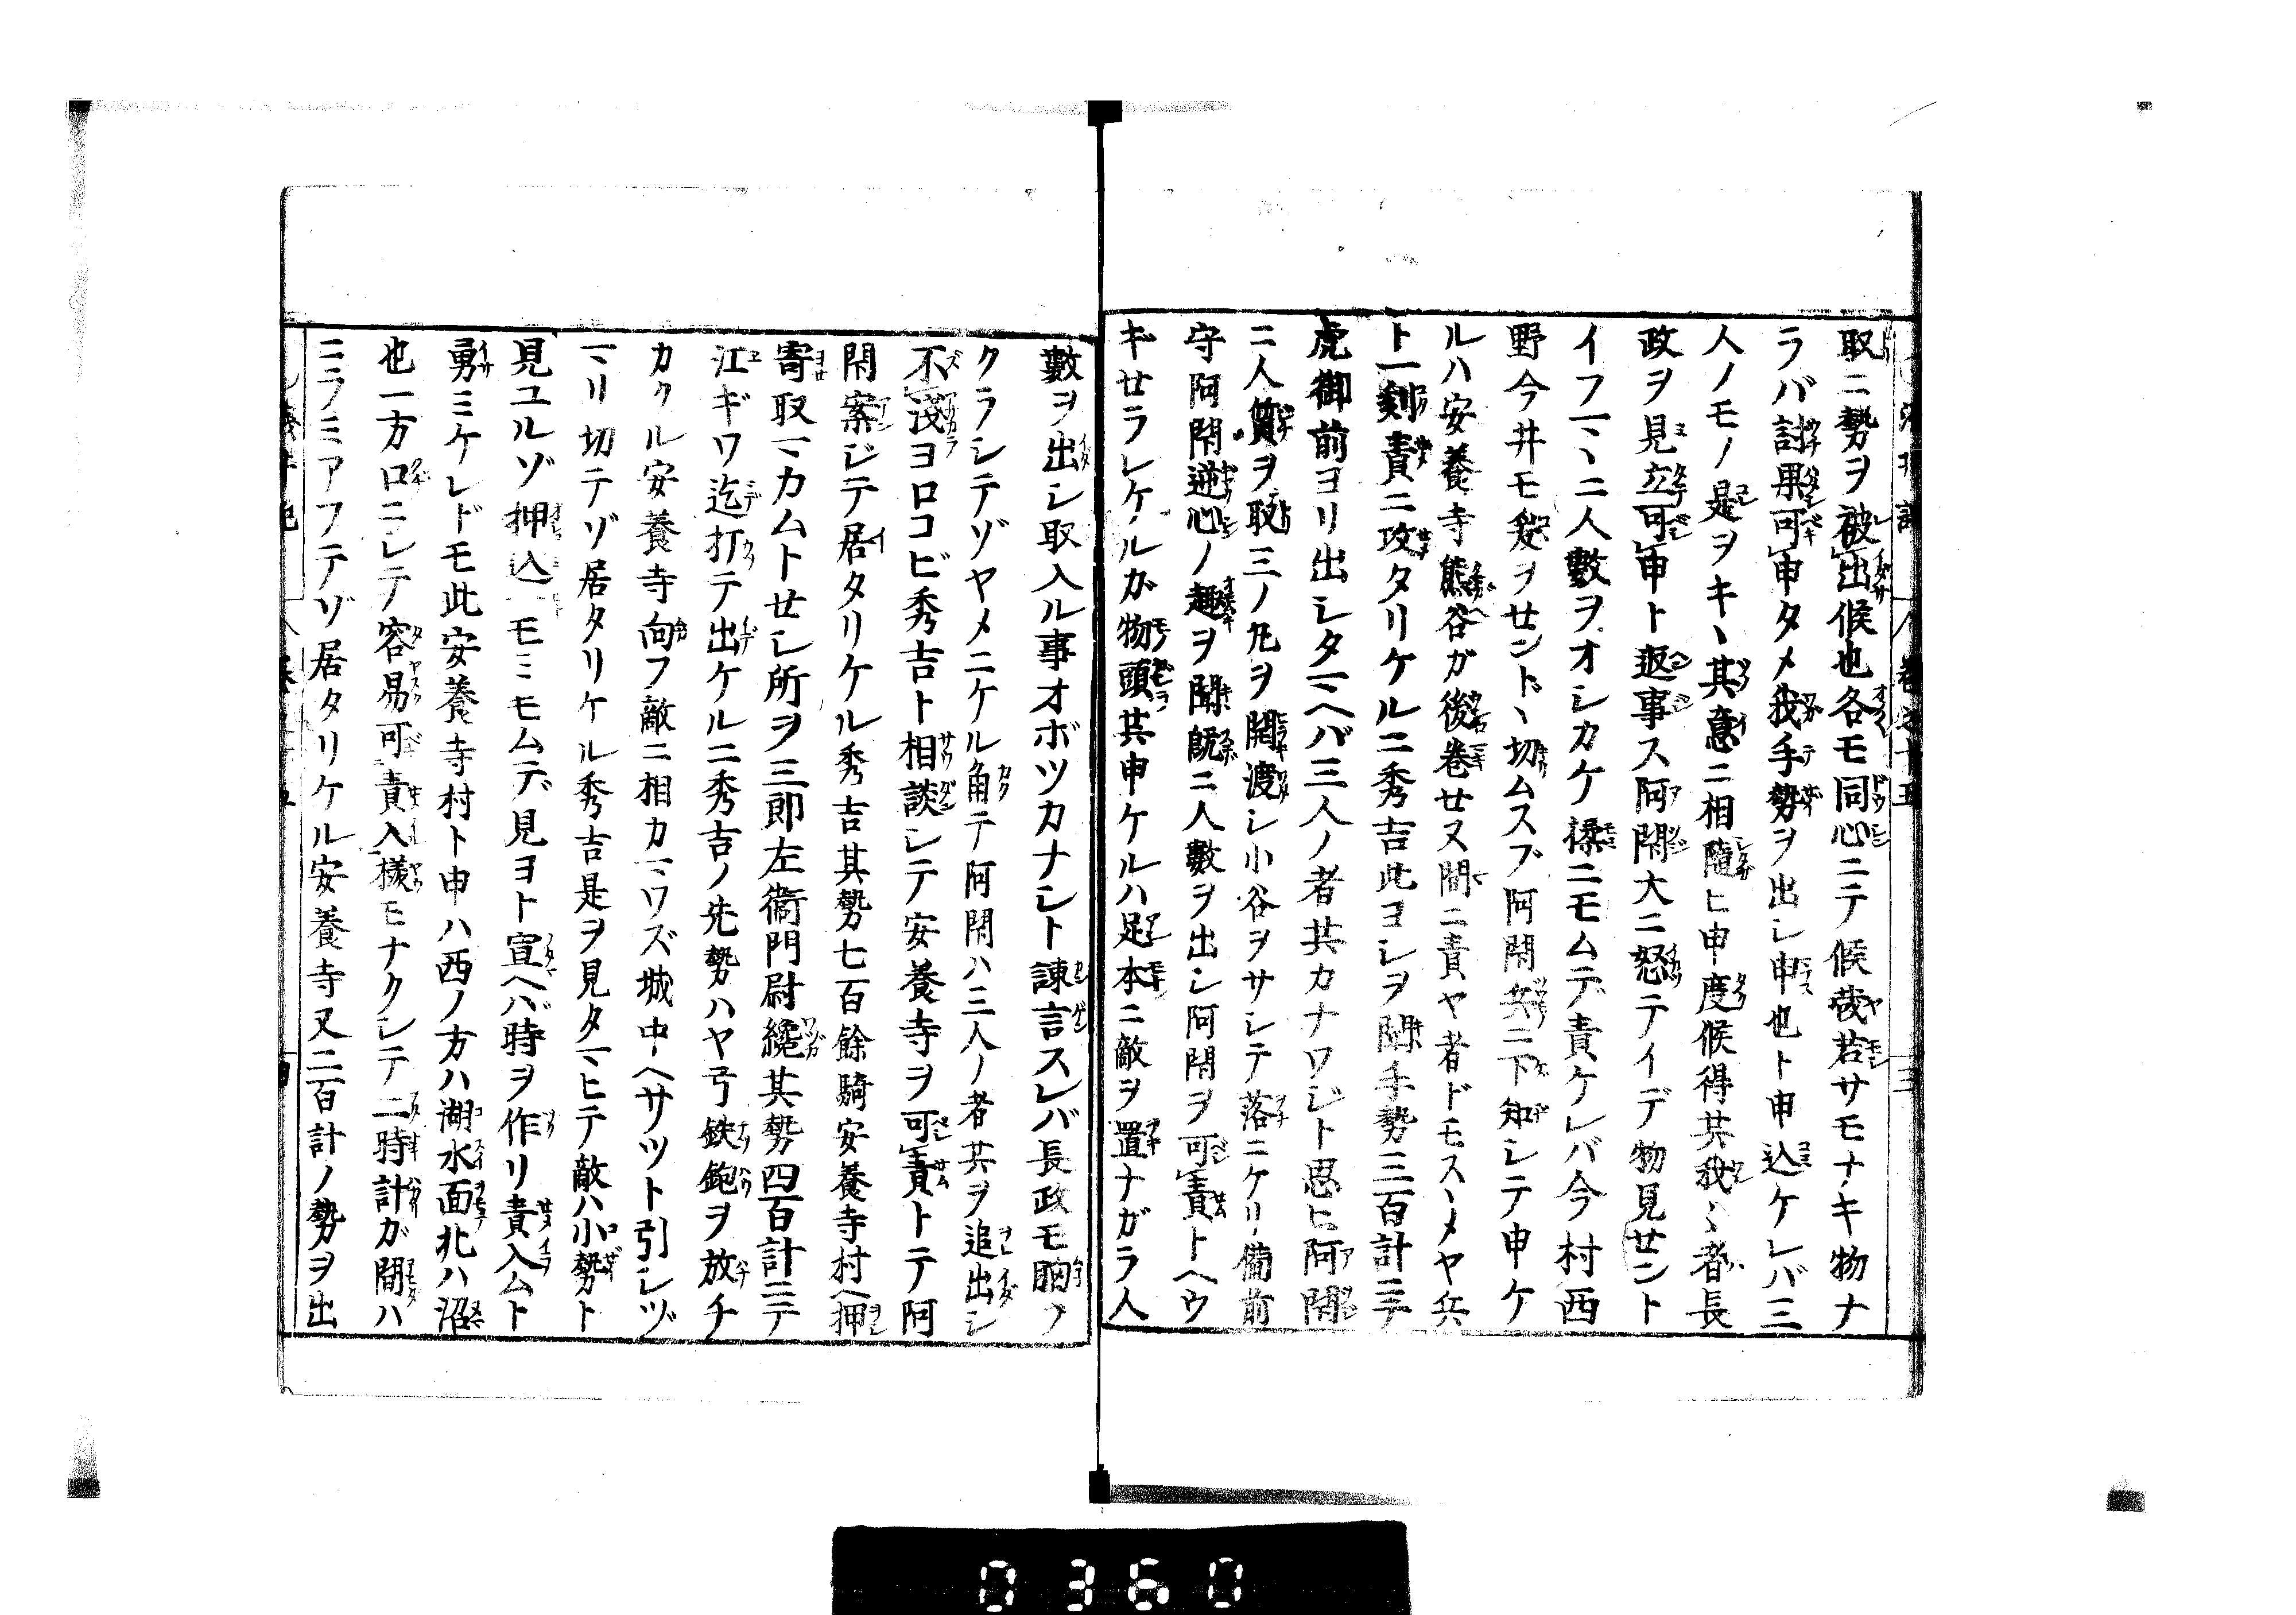 取ニ勢ヲ被出候也各モ同心ニテ候哉若サモナキ物ナ
ラバ討果可申タメ我手勢ヲ出シ申也ト申込ケレバ三
人ノモノ是ヲキヽ其意ニ相隨ヒ申度候得共我ヽ者長
政ヲ見立可申ト返事ス阿閉大ニ怒テイデ物見せント
イフマヽニ人數ヲオシカケ揉ニモムデ責ケレバ今村西
野今井モ爰ヲせントヽ切ムスブ阿閉兵ニ下知シテ申ケ
ルハ安養寺熊谷ガ後巻せヌ間ニ責ヤ者ドモスヽメヤ兵
ト一刻責ニ攻タリケルニ秀吉此ヨシヲ聞手勢三百計ニテ
虎御前ヨリ出シタマヘバ三人ノ者共カナワジト思ヒ阿閉
ニ人質ヲ取三ノ丸ヲ開渡シ小谷ヲサシテ落ニケリ備前
守阿閉逆心ノ趣ヲ聞既ニ人數ヲ出シ阿閉ヲ可責トヘウ
ギせラレケルガ物頭其申ケルハ足本ニ敵ヲ置ナガラ人
數ヲ出シ取入ル事オボツカナシト諌言スレバ長政モ胸ノ
クラシテゾヤメニケル角テ阿閉ハ三人ノ者共ヲ追出シ
不淺ヨロコビ秀吉ト相談シテ安養寺ヲ可責トテ阿
閉案ジテ居タリケル秀吉其勢七百餘騎安養寺村ヘ押
寄取マカムトせシ所ヲ三郎左衞門尉纔其勢四百計ニテ
江ギワ迄打テ出ケルニ秀吉ノ先勢ハヤ弓鉄鉋ヲ放チ
カクル安養寺向フ敵ニ相カマワズ城中ヘサツト引シヅ
マリ切テゾ居タリケル秀吉是ヲ見タマヒテ敵ハ小勢ト
見ユルゾ押込モミモムデ見ヨト宣ヘバ時ヲ作リ責入ムト
勇ミケレドモ此安養寺村ト申ハ西ノ方ハ湖水面北ハ沼
也一方口ニシテ容易可責入樣モナクシテ二時計ガ間ハ
ニラミアフテゾ居タリケル安養寺又二百計ノ勢ヲ出
0360